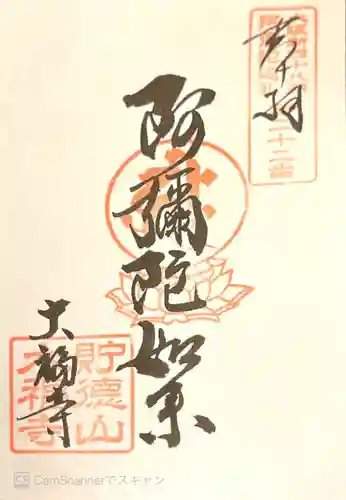 奉拝
二十二番
阿彌陀如来
大福寺
貯徳山
大福寺
CamScannerでスキャン